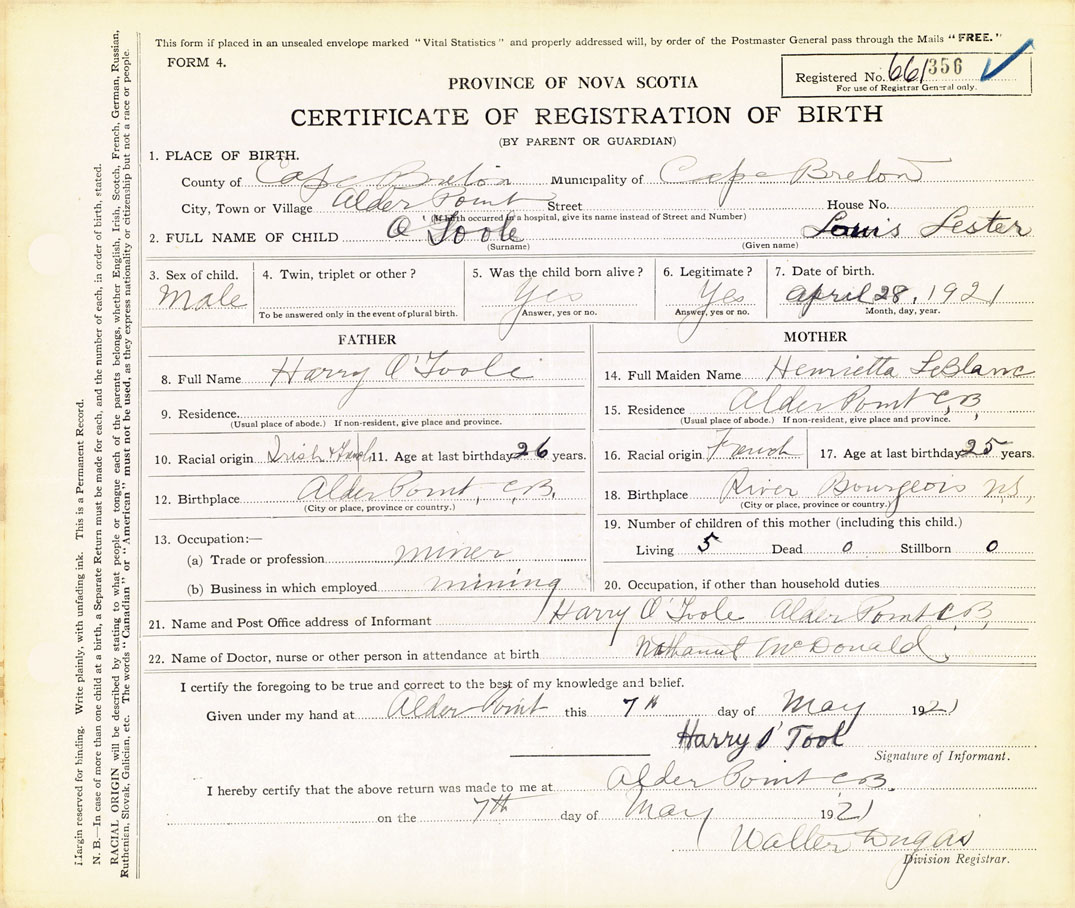 This form if placed in an unsealed envelope marked "Vital Statistics" and properly addressed will, by order of the Postmaster General pass through the Mails "FREE."
FORM 4.
Registered No. 661356
For use of Registrar General only.
PROVINCE OF NOVA SCOTIA
CERTIFICATE OF REGISTRATION OF BIRTH
(BY PARENT OR GUARDIAN)
1. PLACE OF BIRTH.
County of Cape Breton Municipality of Cape Breton
City, Town or Village Alder Point Street House No.
(If birth occurred in a hospital, give its name instead of Street and Number)
2. FULL NAME OF CHILD O'Toole Louis Lester
(Surname) (Given name)
3. Sex of child. 4. Twin, triplet or other? 5. Was the child born alive? 6. Legitimate? 7. Date of birth.
Male Yes Yes April 28, 1921
To be answered only in the event of plural birth. Answer, yes or no. Answer, yes or no. Month, day, year.
FATHER
8. Full Name Harry O'Toole
9. Residence.
(Usual place of abode.) If non-resident, give place and province.
10. Racial origin Irish & French 11. Age at last birthday 26 years.
12. Birthplace Alder Point, C.B.
(City or place, province or country.)
13. Occupation:—
(a) Trade or profession miner
(b) Business in which employed mining
MOTHER
14. Full Maiden Name Henrietta LeBlanc
15. Residence Alder Point C,B,
(Usual place of abode.) If non-resident, give place and province.
16. Racial origin French 17. Age at last birthday 25 years.
18. Birthplace River Bourgeois N.S,
(City or place, province or country.)
19. Number of children of this mother (including this child.)
Living 5 Dead 0 Stillborn 0
20. Occupation, if other than household duties
21. Name and Post Office address of Informant Harry O'Toole Alder Point C,B,
22. Name of Doctor, nurse or other person in attendance at birth Nathaniel McDonald
I certify the foregoing to be true and correct to the best of my knowledge and belief.
Given under my hand at Alder Point this 7th day of May 1921
Harry O'Tool
Signature of Informant.
I hereby certify that the above return was made to me at Alder Point C B.
on the 7th day of May 1921
Walter Dugas
Division Registrar.
Margin reserved for binding. Write plainly, with unfading ink. This is a Permanent Record.
N. B.—In case of more than one child at a birth, a Separate Return must be made for each, and the number of each, in order of birth, stated.
RACIAL ORIGIN will be described by stating to what people or tongue each of the parents belongs, whether English, Irish, Scotch, French, German, Russian,
Ruthenian, Slovak, Galician, etc. The words "Canadian" or "American" must not be used, as they express nationality or citizenship but not a race or people.